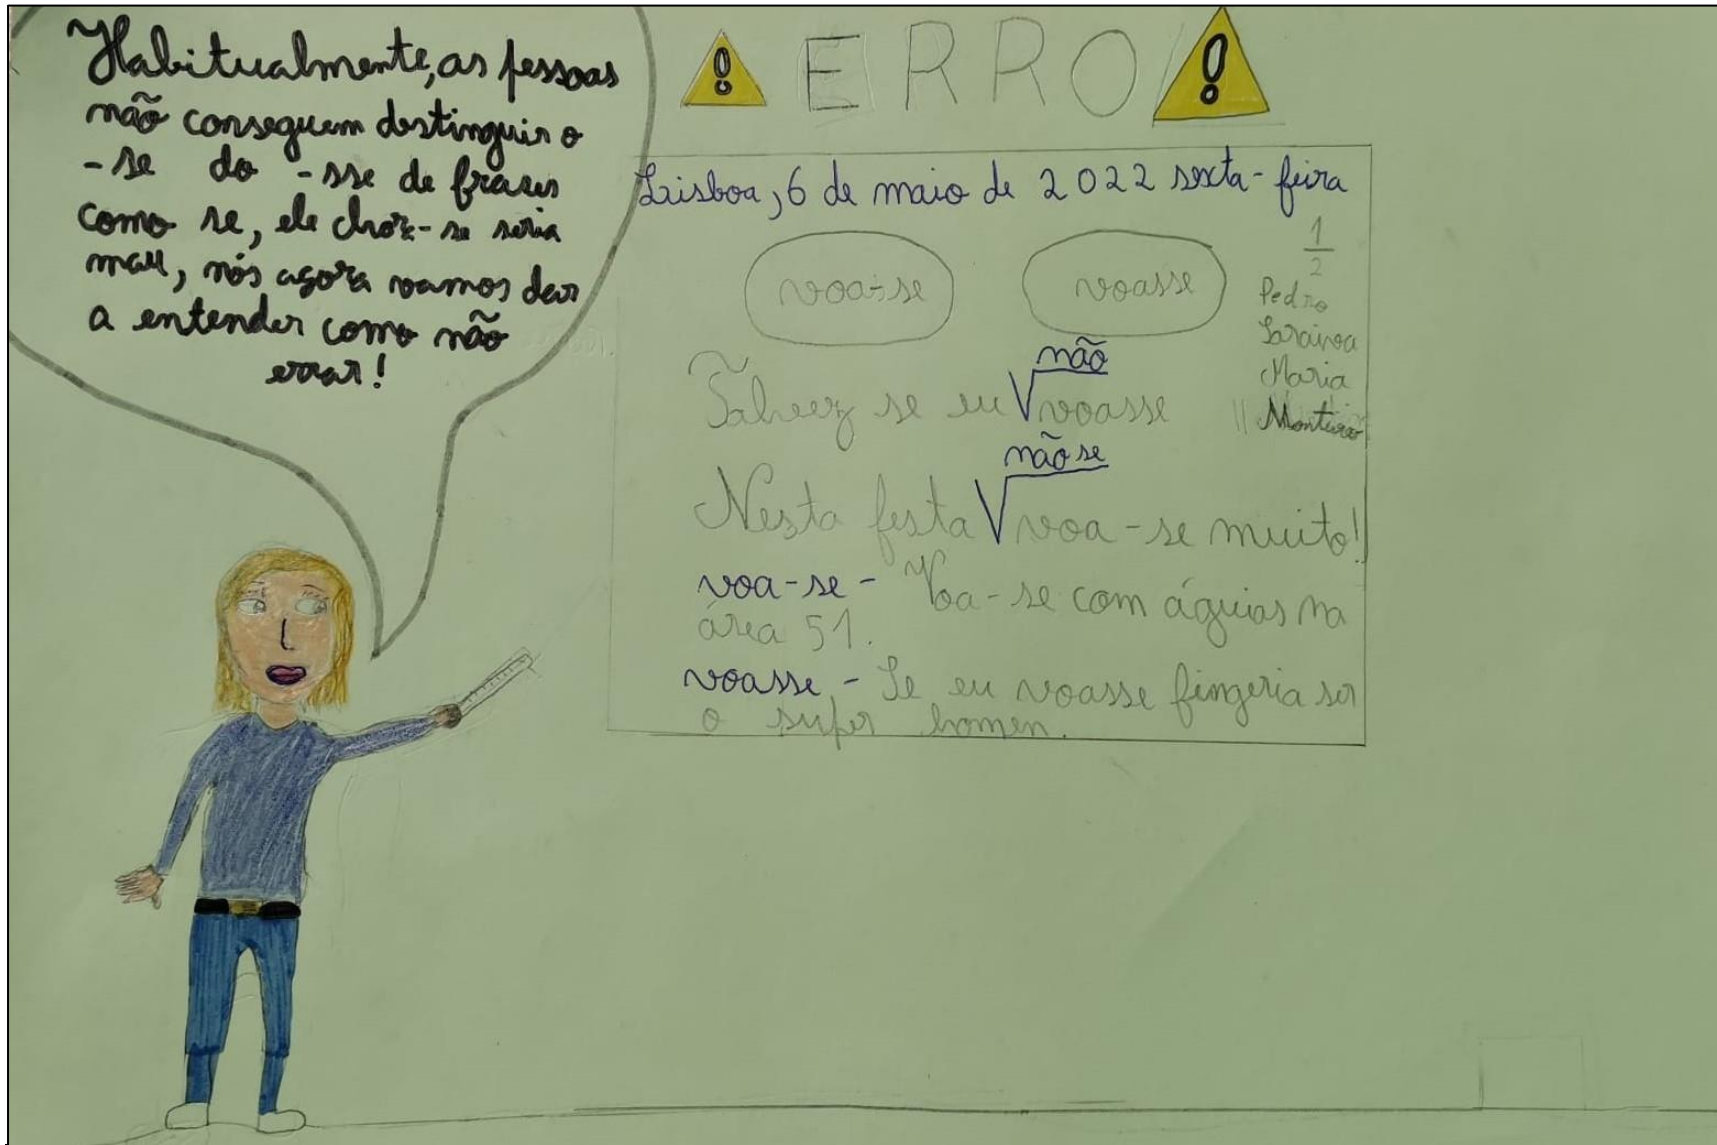 Habitualmente, as pessoas
não conseguem destinguir o
-se do -sse de frases
como se, ele chora-se seria
mau, nós agora vamos dar
a entender como não
errar!
! ERRO !
Lisboa, 6 de maio de 2022 sexta-feira
voa-se voasse
1
2
Pedro
Saraiva
Maria
Monteiro
não
Talvez se eu √voasse
não se
Nesta festa √voa-se muito!
voa-se - Voa-se com águias na
área 51.
voasse - Se eu voasse fingeria ser
o super homen.